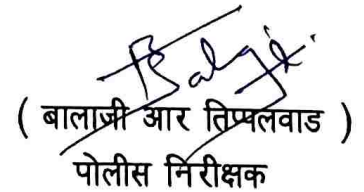 Balaji
( बालाजी आर तिप्पलवाड )
पोलीस निरीक्षक